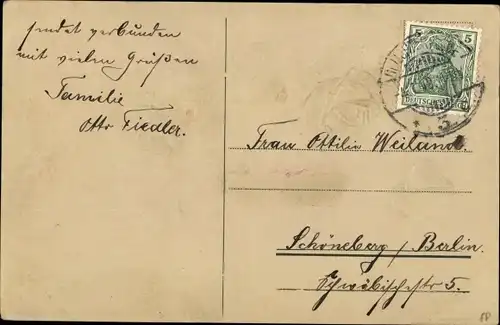 sendet verbunden
mit vielen Grüßen
Familie
Otto Fiedler.
5 5
DEUTSCHES REICH
* 5
Frau Ottilie Weiland.
Schöneberg / Berlin.
Schwäbischestr 5.